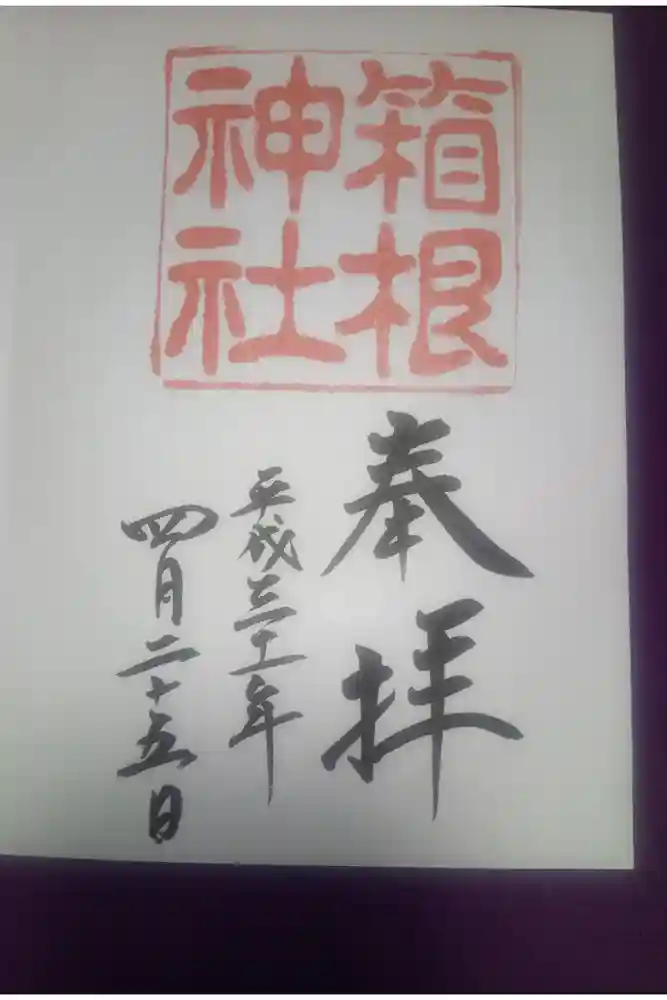 箱根
神社
奉拝
平成三十一年
四月二十五日